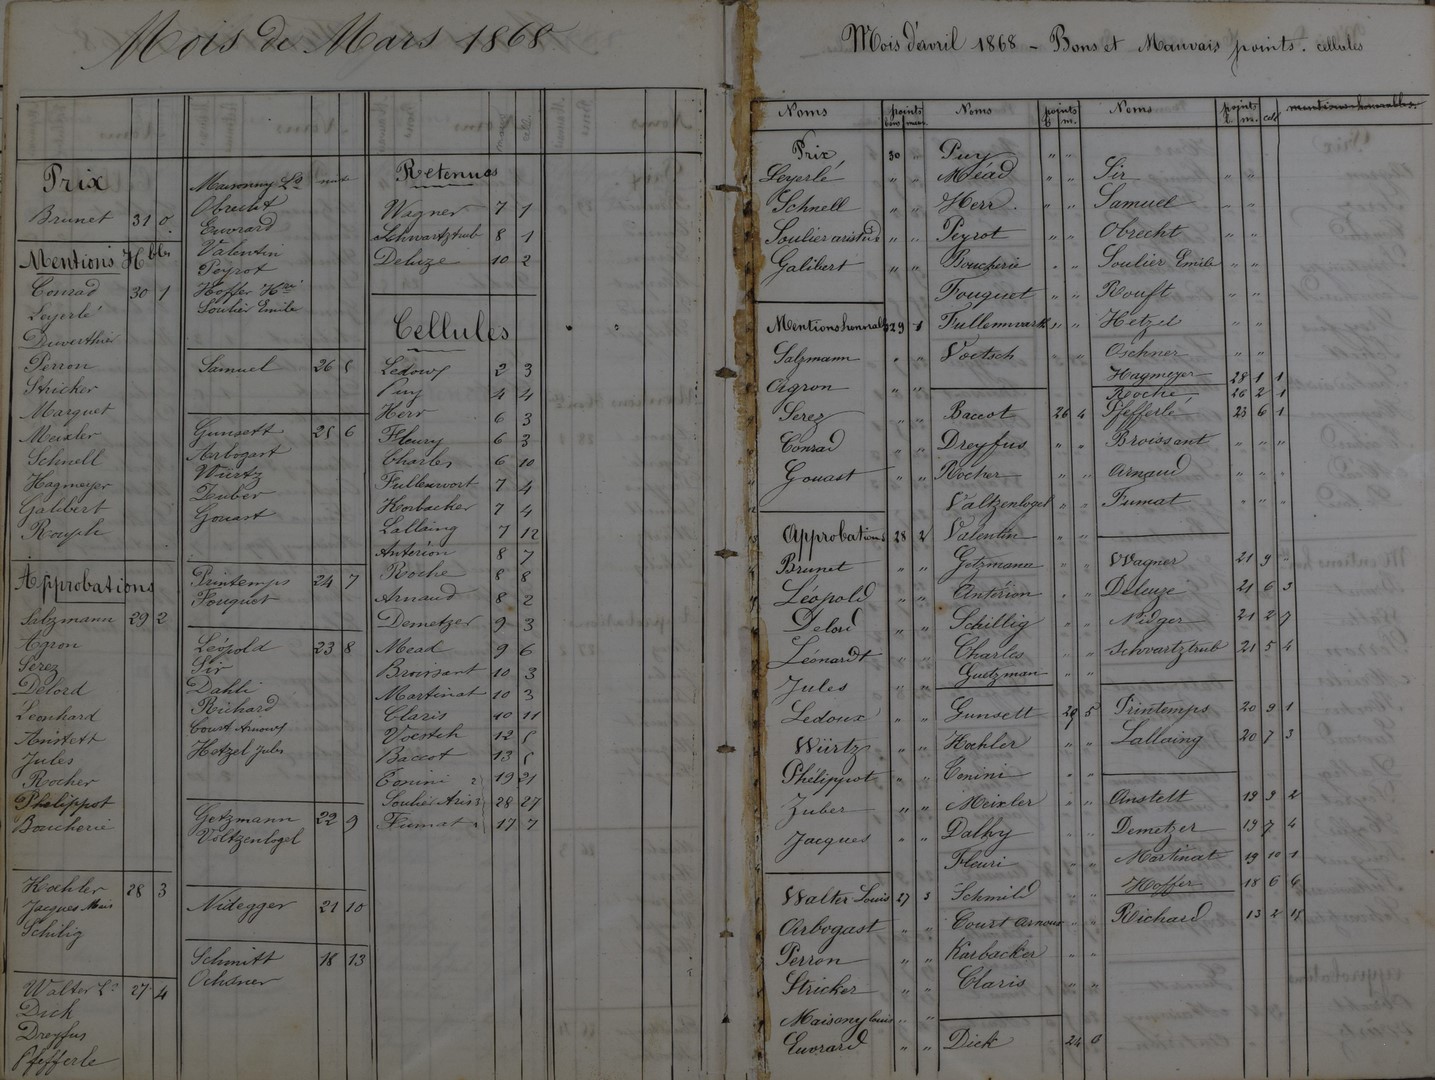 Mois de Mars 1868
Prix
Brunet 31 0
Mentions H bles
Conrad 30 1
Leyerlé
Duverthier
Perron
Stricker
Marguet
Meixler
Schnell
Hagmeyer
Galibert
Rouph
Approbations
Salzmann 29 2
Agron
Serez
Delord
Léonhard
Anstett
Jules
Rocher
Philippot
Boucherie
Kœhler 28 3
Jacques
Schilig
Walter Ls 27 4
Dick
Dreyfus
Pfefferlé
Maisonny Ls
Obrecht
Euvrard
Valentin
Peyrot
Hoffer
Soulier Emile
Samuel 26 5
Gunsett 25 6
Arbogast
Würtz
Zuber
Gouast
Printemps 24 7
Fouquet
Léopold 23 8
Sir
Dahli
Richard
Court Arnoux
Hetzel Jules
Getzmann 22 9
Voltzenlogel
Nidegger 21 10
Schmitt 18 13
Ochsner
Retenues
Wagner 7 1
Schwartztrub 8 1
Deluze 10 2
Cellules
Ledoux 2 3
Puy 4 4
Herr 6 3
Fleury 6 3
Charles 6 10
Fullenwort 7 4
Horbacher 7 4
Lallaing 7 12
Antérion 8 7
Roche 8 8
Arnaud 8 2
Demetzer 9 3
Mead 9 6
Broissant 10 3
Martinat 10 3
Claris 10 11
Voestch 12 5
Baccot 13 5
Conini 19 21
Soulier Arist 28 27
Fumat 17 7
Mois d'avril 1868 - Bons et Mauvais points. cellules
Noms points bons mauv.
Prix 30 "
Leyerlé " "
Schnell " "
Soulier aristide " "
Galibert " "
Mentions honorables 29 1
Salzmann " "
Agron " "
Serez " "
Conrad " "
Gouast " "
Approbations 28 2
Brunet " "
Léopold " "
Delord " "
Léonardt " "
Jules " "
Ledoux " "
Würtz " "
Philippot " "
Zuber " "
Jacques " "
Walter Louis 27 3
Arbogast " "
Perron " "
Stricker " "
Maisony louis " "
Euvrard " "
Noms points b m.
Puy " "
Méad " "
Herr. " "
Peyrot " "
Boucherie " "
Fouquet " "
Fullennwarth " "
Voetsch " "
Baccot 26 4
Dreyfus " "
Rocher " "
Valtzenlogel " "
Valentin " "
Getzmann " "
Antérion " "
Schillig " "
Charles " "
Guetzman " "
Gunsett 5
Kœhler " "
Conini " "
Meixler " "
Dalhy " "
Fleuri " "
Schmild " "
Court Arnoux " "
Karbacker " "
Claris " "
Dick 24 6
Noms points b. m. cell
mentions honorables.
Sir " "
Samuel " "
Obrecht " "
Soulier Emile " "
Rouft " "
Hetzel " "
Oschner " "
Hagmeyer 28 1 1
Roché 26 2 1
Pfefferlé 23 6 1
Broissant " " "
Arnaud " " "
Fumat " " "
Wagner 21 9 "
Deleuze 21 6 3
Nidger 21 2 7
Schvartztrub 21 5 4
Printemps 20 9 1
Lallaing 20 7 3
Anstett 19 9 2
Demetzer 19 7 4
Martinat 19 10 1
Hoffer 18 6 6
Richard 13 2